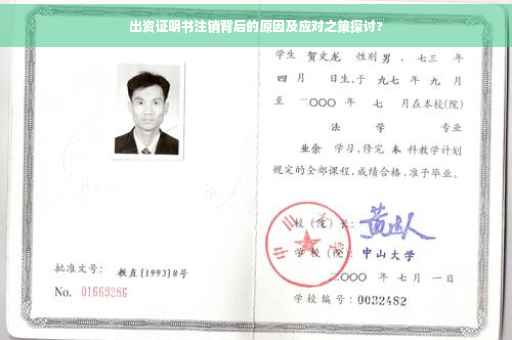 出资证明书注销背后的原因及应对之策探讨?
学生 贺文龙 性别男、七三 年
四 月 日生,于 九七 年 九 月
至 二〇〇〇 年 七 月在本校(院)
法 学 专业
业余 学习,修完 本 科教学计划
规定的全部课程,成绩合格,准予毕业。
校(院)长:
学校(院): 中山大学
二〇〇〇 年 七 月 一 日
学校编号:0032482
批准文号: 教直[1993]8号
No. 01669286